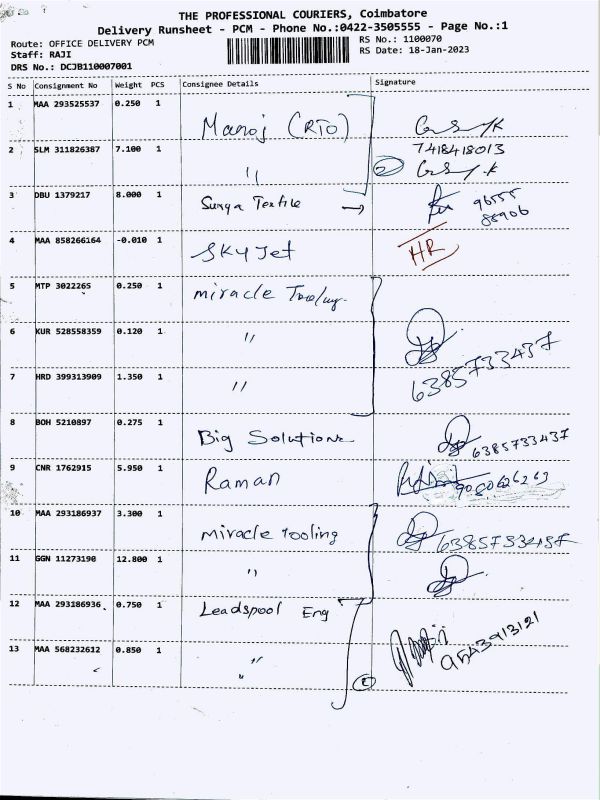 THE PROFESSIONAL COURIERS, Coimbatore
Delivery Runsheet - PCM - Phone No.:0422-3505555 - Page No.:1
Route: OFFICE DELIVERY PCM
RS No.: 1100070
Staff: RAJI
RS Date: 18-Jan-2023
DRS No.: DCJB110007001
S No Consignment No Weight PCS Consignee Details Signature
1 MAA 293525537 0.250 1 Manoj (RTO)
2 SLM 311826387 7.100 1 〃 7418418013 2
3 DBU 1379217 8.000 1 Surya Textile → 96555 88906
4 MAA 858266164 -0.010 1 SKY Jet HR
5 MTP 3022265 0.250 1 miracle Tooling
6 KUR 528558359 0.120 1 〃
7 HRD 399313909 1.350 1 〃 6385733437
8 BOH 5210897 0.275 1 Big Solutions 6385733437
9 CNR 1762915 5.950 1 Raman 9080626263
10 MAA 293186937 3.300 1 miracle tooling 6385733437
11 GGN 11273190 12.800 1 〃
12 MAA 293186936 0.750 1 Leadspool Eng
13 MAA 568232612 0.850 1 〃
〃